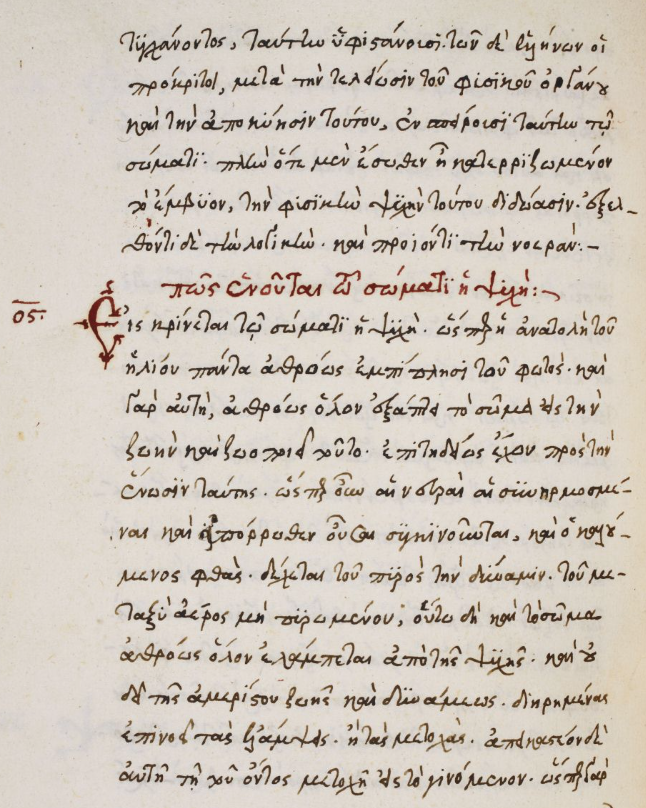 τυγχάνοντος, ταύτην ὑφιστάνουσι. τῶν δὲ ἑλλήνων οἱ
πρόκριτοι, μετὰ τὴν τελείωσιν τοῦ φυσικοῦ ὀργάνου
καὶ τὴν ἀποκύησιν τούτου, ἐν σπείρουσι ταύτην τῷ
σώματι. πλὴν ὅτε μὲν ἔσωθεν ἢ κατερριζωμένον
τὸ ἔμβρυον, τὴν φυσικὴν ψυχὴν τούτου διδόασιν. ἐξελ-
θόντι δὲ τὴν λογικήν. καὶ προϊόντι τὴν νοεράν:-
πῶς ἑνοῦται τῷ σώματι ἡ ψυχή:
οϛ. Εἰς κρίνεται τῷ σώματι ἡ ψυχή. ὥσπερ ἡ ἀνατολὴ τοῦ
ἡλίου πάντα ἀθρόως ἐμπίπλησι τοῦ φωτός. καὶ
γὰρ αὐτὴ, ἀθρόως ὅλον ἐξάπτει τὸ σῶμα εἰς τὴν
ζωὴν καὶ ζωοποιεῖ τοῦτο. ἐπιτηδείως ἔχον πρὸς τὴν
ἕνωσιν ταύτης. ὥσπερ οὖν αἱ νευραὶ αἱ συνηρμοσμέ-
ναι καὶ πόρρωθεν οὖσαι συγκινοῦνται, καὶ ὁ καλού-
μενος φθὰς. δέχεται τοῦ πυρὸς τὴν δύναμιν. τοῦ με-
ταξὺ ἀέρος μὴ πυρωμένου, οὕτω δὴ καὶ τὸ σῶμα
ἀθρόως ὅλον ἐλάμπεται ἀπὸ τῆς ψυχῆς. καὶ οὐ
δεῖ τῆς ἀμερίστου ζωῆς καὶ δυνάμεως. διηρημένας
ἐπινοεῖν τὰς ἐλλάμψεις. ἢ τὰς μετοχάς. ἀπεικαστέον δὲ
αὐτὴν τῇ τοῦ ὄντος μετοχῇ εἰς τὸ γινόμενον. ὥσπερ γὰρ